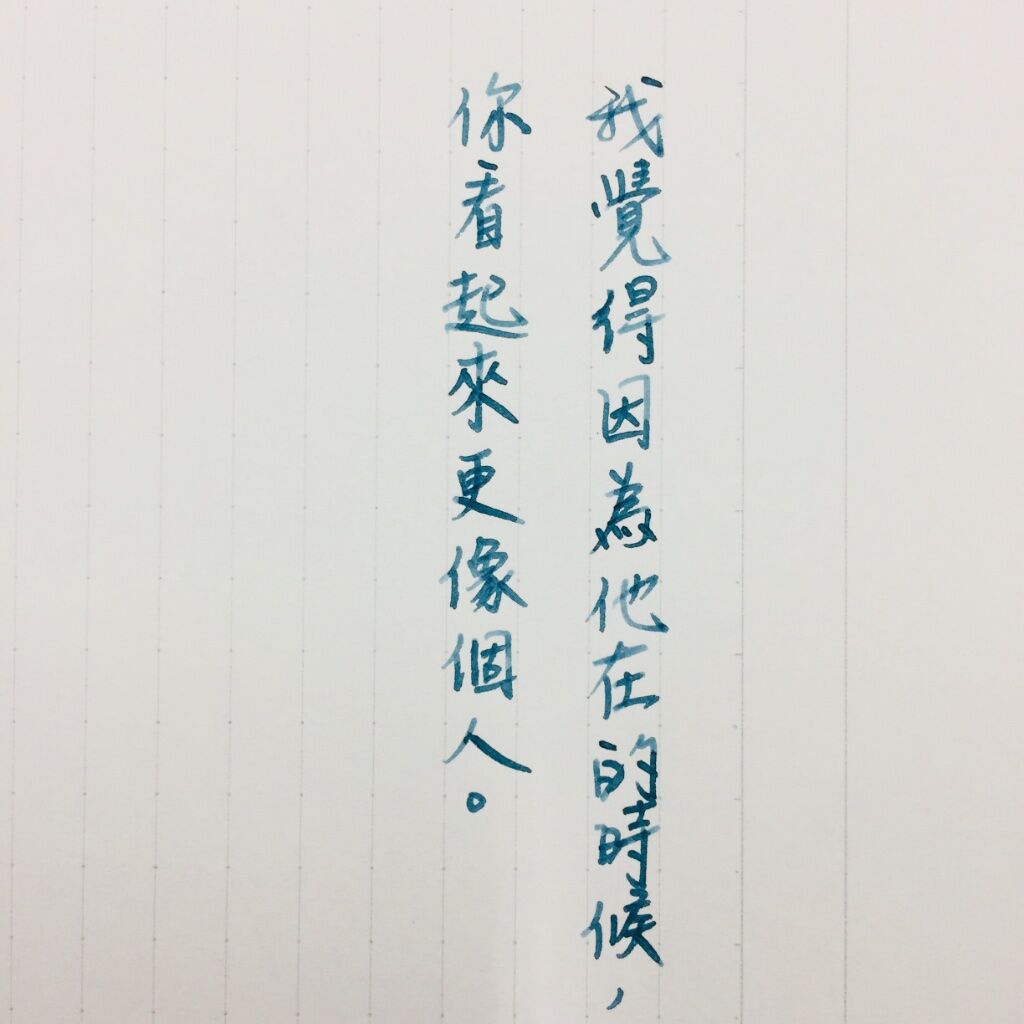 我覺得因為他在的時候，
你看起來更像個人。